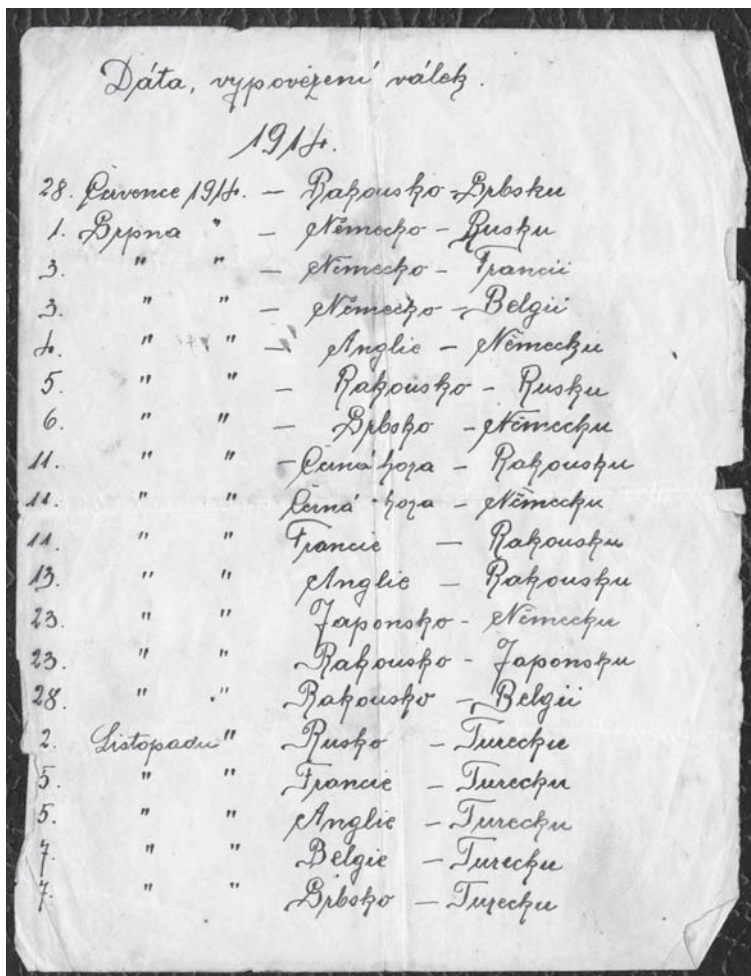 Dáta, vypovězení válek.
1914.
28. Července 1914. – Rakousko – Srbsku
1. Srpna " – Německo – Rusku
3. " " – Německo – Francii
3. " " – Německo – Belgii
4. " " – Anglie – Německu
5. " " – Rakousko – Rusku
6. " " – Srbsko – Německu
11. " " – Černá hora – Rakousku
11. " " Černá hora – Německu
11. " " Francie – Rakousku
13. " " Anglie – Rakousku
23. " " Japonsko – Německu
23. " " Rakousko – Japonsku
28. " " Rakousko – Belgii
2. Listopadu " Rusko – Turecku
5. " " Francie – Turecku
5. " " Anglie – Turecku
7. " " Belgie – Turecku
7. " " Srbsko – Turecku